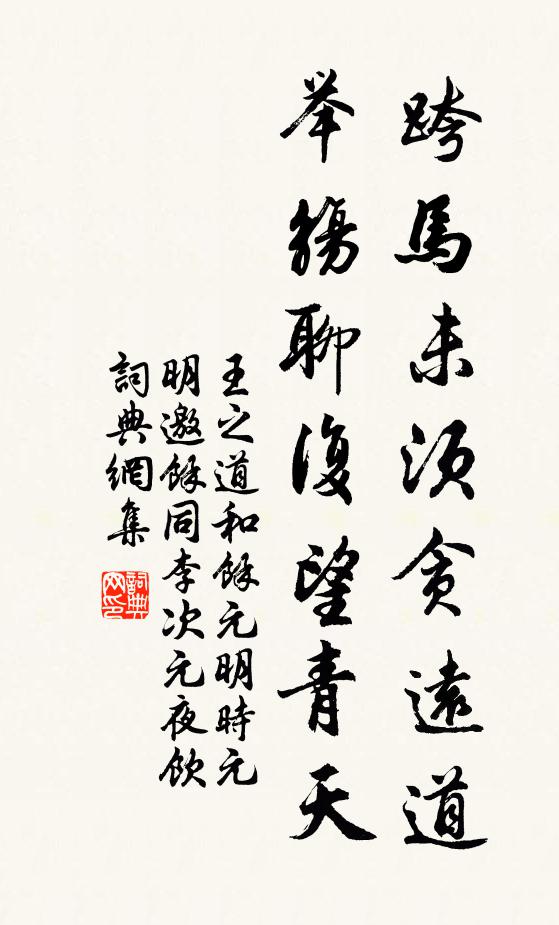 跨馬未須貪遠道
举觴聊復望青天
王之道和餘元明時元
明邀餘同李次元夜飲
詞典網集
詞典網印